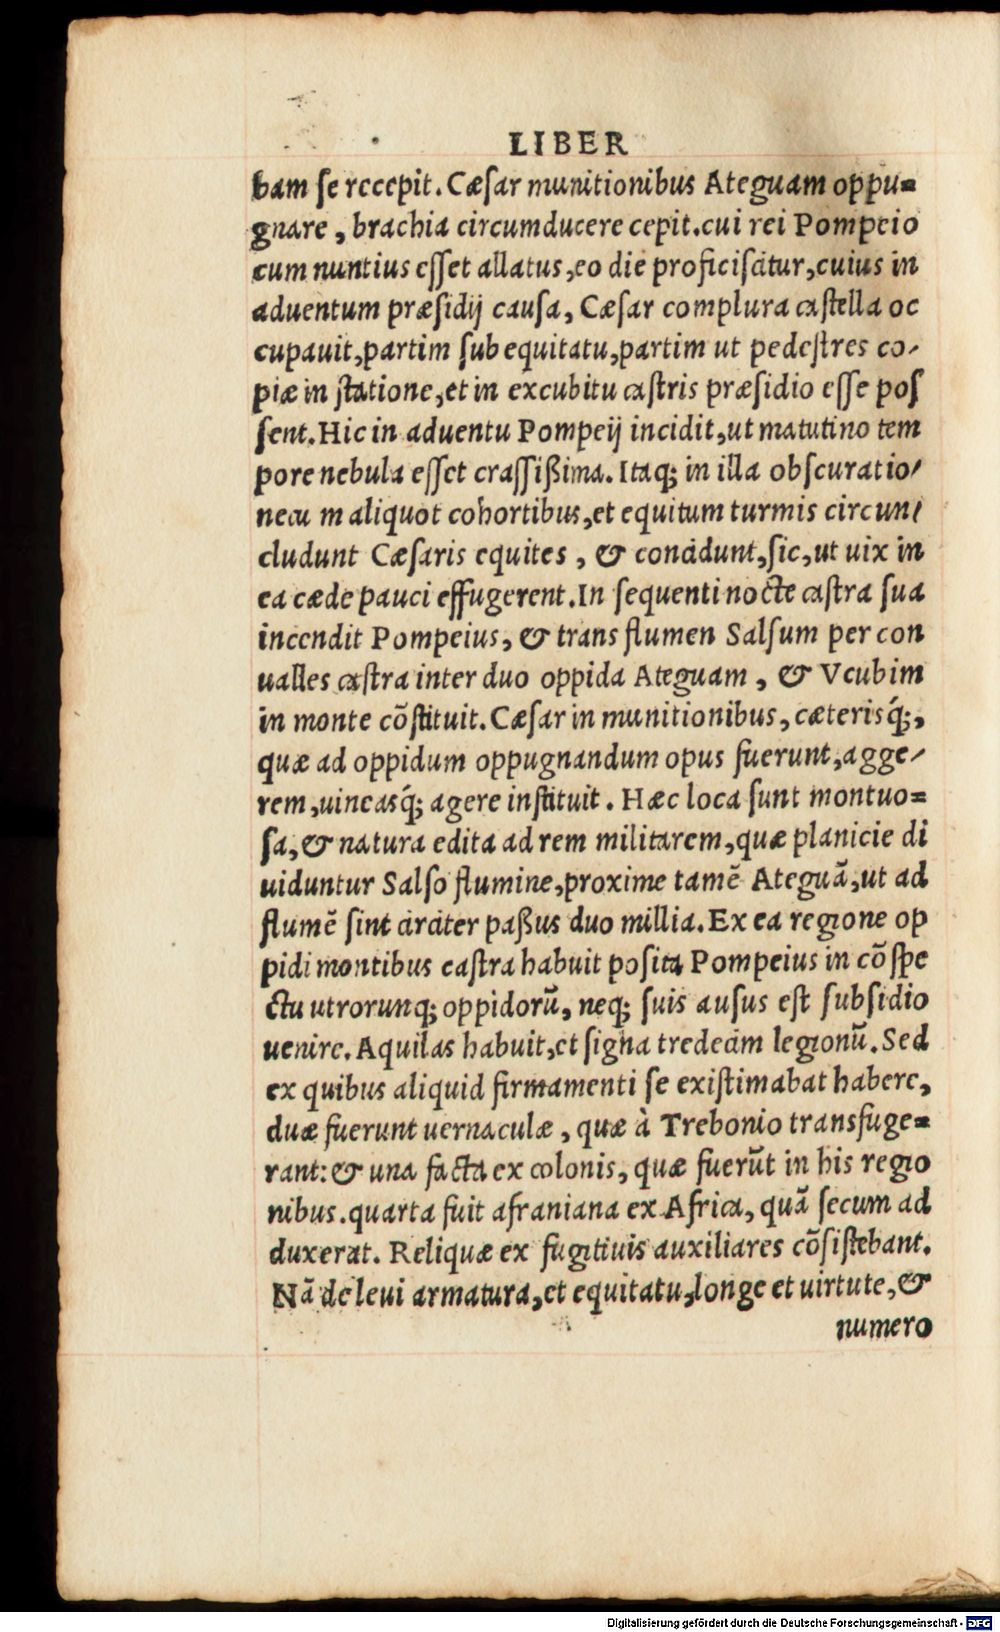 LIBER
bam ſe recepit. Cæſar munitionibus Ateguam oppu=
gnare, brachia circumducere cepit. cui rei Pompeio
cum nuntius eſſet allatus, eo die proficiſcitur, cuius in
aduentum præſidij cauſa, Cæſar complura caſtella oc
cupauit, partim ſub equitatu, partim ut pedeſtres co-
piæ in ſtatione, et in excubitu caſtris præſidio eſſe poſ
ſent. Hic in aduentu Pompeij incidit, ut matutino tem
pore nebula eſſet craſſißima. Itaq; in illa obſcuratio-
necu m aliquot cohortibus, et equitum turmis circun-
cludunt Cæſaris equites, & concidunt, ſic, ut uix in
ea cæde pauci effugerent. In ſequenti nocte caſtra ſua
incendit Pompeius, & trans flumen Salſum per con
ualles caſtra inter duo oppida Ateguam, & Vcubim
in monte cõſtituit. Cæſar in munitionibus, cæterisq́;,
quæ ad oppidum oppugnandum opus fuerunt, agge-
rem, uineasq́; agere inſtituit. Hæc loca ſunt montuo=
ſa, & natura edita ad rem militarem, quæ planicie di
uiduntur Salſo flumine, proxime tamẽ Ateguã, ut ad
flumẽ ſint circiter paßus duo millia. Ex ea regione op
pidi montibus caſtra habuit poſita Pompeius in cõſpe
ctu utrorunq; oppidorũ, neq; ſuis auſus eſt ſubſidio
uenire. Aquilas habuit, et ſigna tredecim legionũ. Sed
ex quibus aliquid firmamenti ſe exiſtimabat habere,
duæ fuerunt uernaculæ, quæ à Trebonio transfuge=
rant: & una facta ex colonis, quæ fuerũt in his regio
nibus. quarta fuit afraniana ex Africa, quã ſecum ad
duxerat. Reliquæ ex fugitiuis auxiliares cõſiſtebant.
Nã de leui armatura, et equitatu, longe et uirtute, &
numero
Digitalisierung gefördert durch die Deutsche Forschungsgemeinschaft - DFG